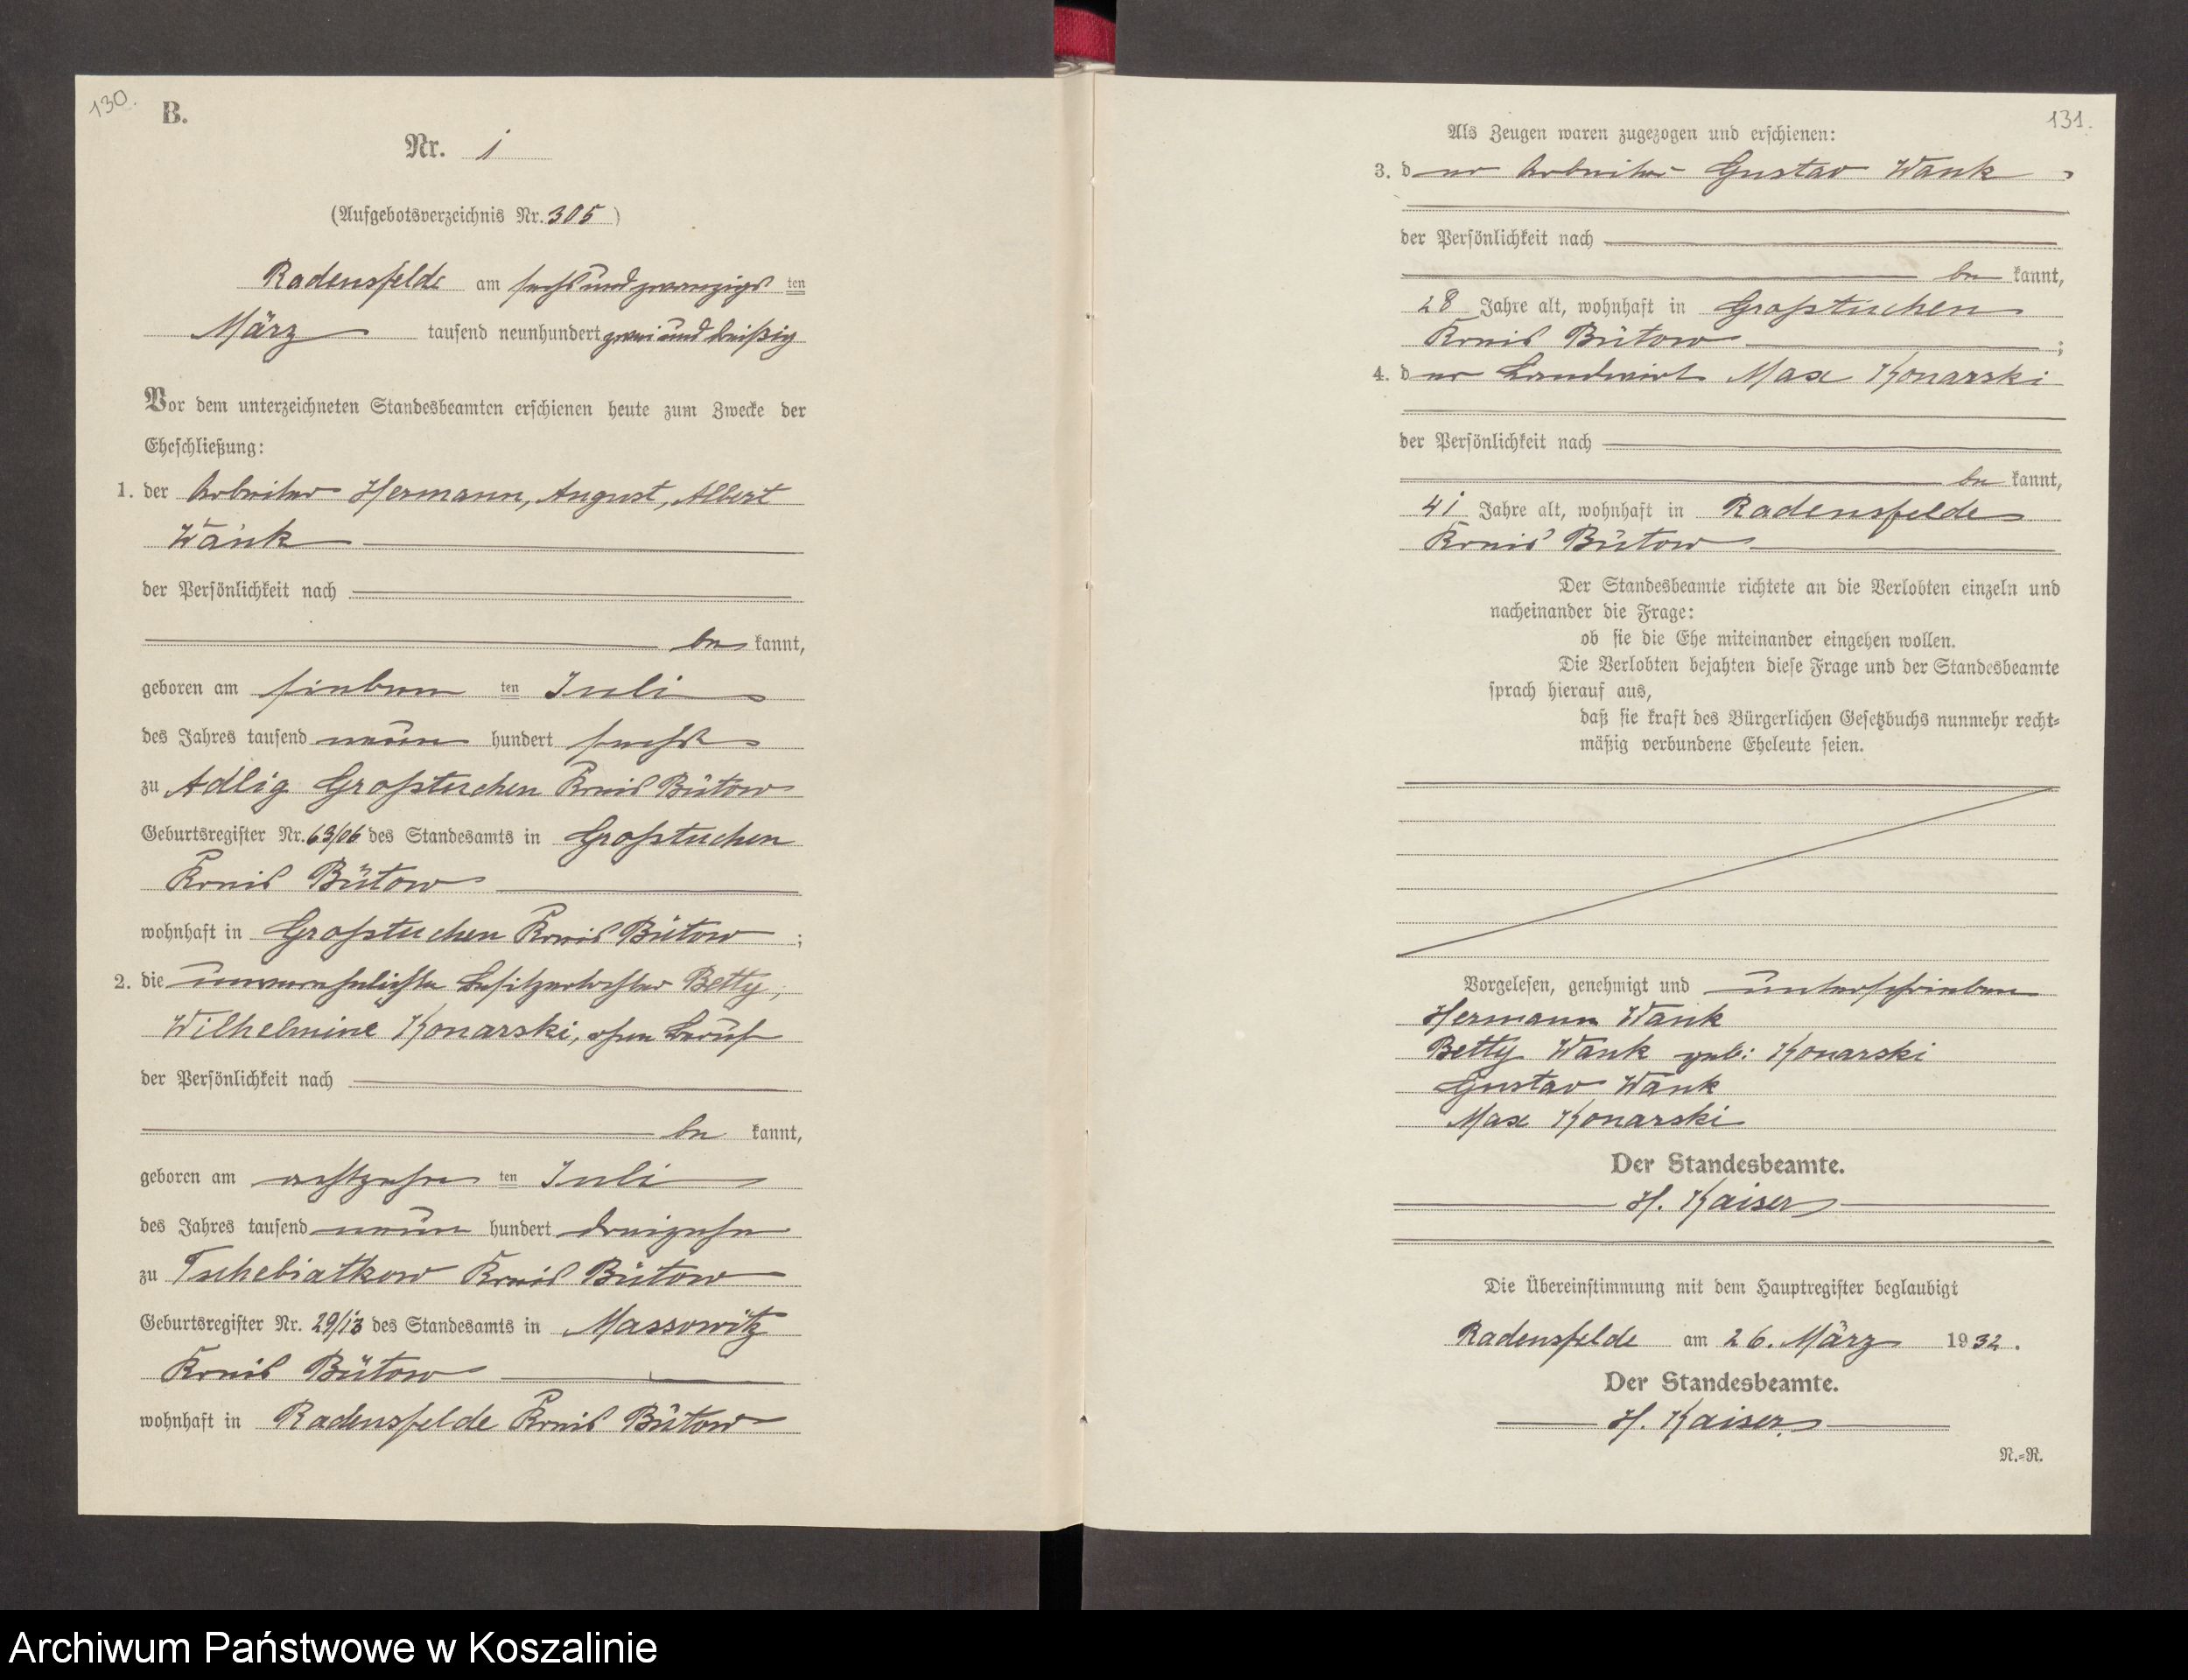 130.
B.
Nr. 1
(Aufgebotsverzeichnis Nr. 305)
Radensfelde am sechsundzwanzigs ten
März tausend neunhundert zweiunddreißig
Vor dem unterzeichneten Standesbeamten erschienen heute zum Zwecke der
Eheschließung:
1. der Arbeiter Hermann, August, Albert
Wank
der Persönlichkeit nach
be kannt,
geboren am sieben ten Juli
des Jahres tausend neun hundert sechs
zu Adlig Großtuchen Kreis Bütow
Geburtsregister Nr. 63/06 des Standesamts in Großtuchen
Kreis Bütow
wohnhaft in Großtuchen Kreis Bütow ;
2. die unverehelichte Besitzertochter Betty,
Wilhelmine Konarski, ohne Beruf
der Persönlichkeit nach
be kannt,
geboren am achtzehn ten Juli
des Jahres tausend neun hundert dreizehn
zu Tschebiatkow Kreis Bütow
Geburtsregister Nr. 29/13 des Standesamts in Massowitz
Kreis Bütow
wohnhaft in Radensfelde Kreis Bütow
131.
Als Zeugen waren zugezogen und erschienen:
3. d er Arbeiter Gustav Wank ,
der Persönlichkeit nach
be kannt,
28 Jahre alt, wohnhaft in Großtuchen
Kreis Bütow ;
4. d er Landwirt Max Konarski
der Persönlichkeit nach
be kannt,
41 Jahre alt, wohnhaft in Radensfelde
Kreis Bütow
Der Standesbeamte richtete an die Verlobten einzeln und
nacheinander die Frage:
ob sie die Ehe miteinander eingehen wollen.
Die Verlobten bejahten diese Frage und der Standesbeamte
sprach hierauf aus,
daß sie kraft des Bürgerlichen Gesetzbuchs nunmehr recht-
mäßig verbundene Eheleute seien.
Vorgelesen, genehmigt und unterschrieben
Hermann Wank
Betty Wank geb: Konarski
Gustav Wank
Max Konarski
Der Standesbeamte.
H. Kaiser
Die Übereinstimmung mit dem Hauptregister beglaubigt
Radensfelde am 26. März 1932.
Der Standesbeamte.
H. Kaiser
N.-R.
Archiwum Państwowe w Koszalinie